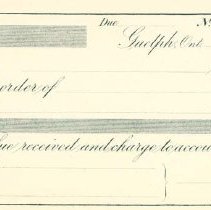 Due No
Guelph, Ont.
order of
received and charge to